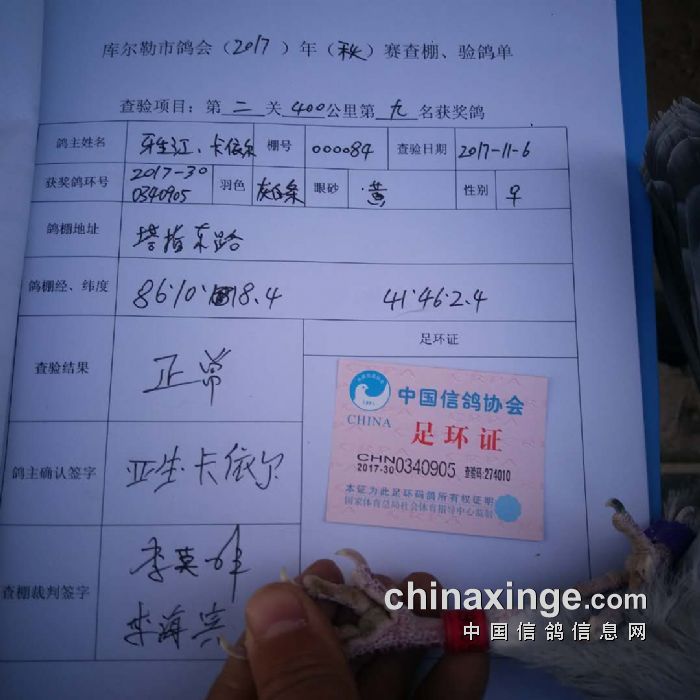 库尔勒市鸽会(2017)年(秋)赛查棚、验鸽单
查验项目:第二关400公里第九名获奖鸽
鸽主姓名 牙生江、卡依尔 棚号 000084 查验日期 2017-11-6
获奖鸽环号 2017-30 0340905 羽色 灰白条 眼砂 黄 性别 ♀
鸽棚地址 塔指东路
鸽棚经、纬度 86·10·18.4 41·46·2.4
查验结果 正常
足环证
中国信鸽协会
CHINA
足环证
CHN
2017-30 0340905 查验码:274010
本证为此足环码鸽所有权证明
国家体育总局社会体育指导中心监制
鸽主确认签字 亚生·卡依尔
查棚裁判签字 李英
李海宾
chinaxinge.com
中国信鸽信息网